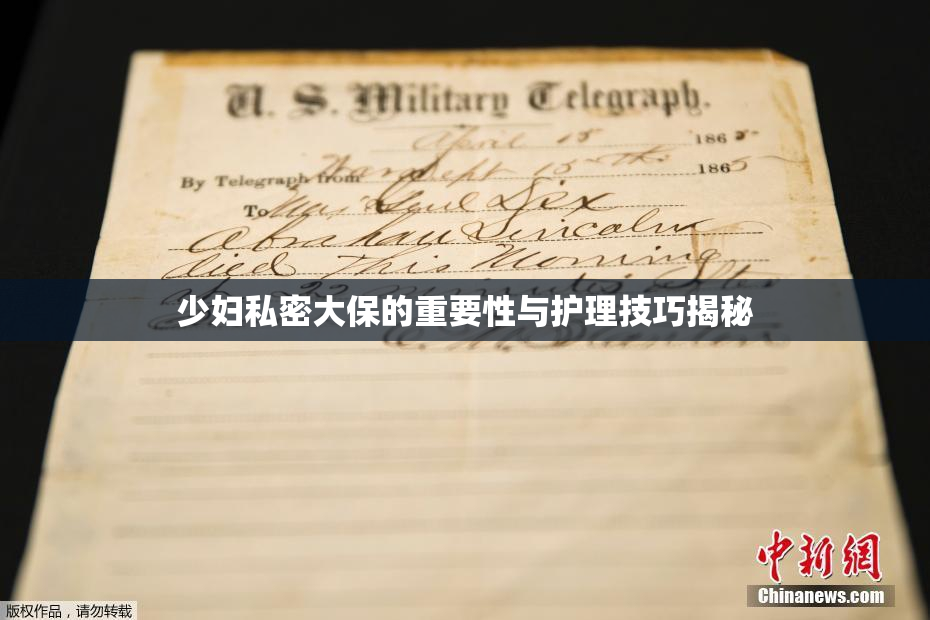 U. S. Military Telegraph.
April 15 1865
By Telegraph from War Dept 15th 1865
To Maj Genl Dix
Abraham Lincoln
died This Morning
22 minutes after
少妇私密大保的重要性与护理技巧揭秘
中新網
Chinanews.com
版权作品，请勿转载